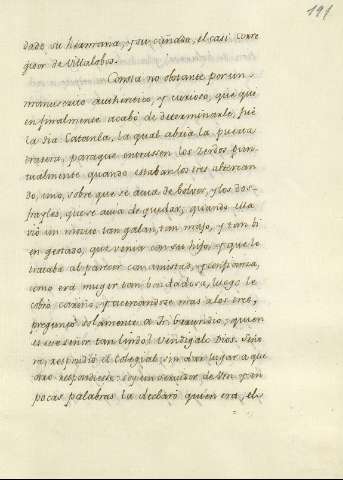 191
dade su hermana, y su cuñado, el casi corre
gidor de Villalobos.
Consta no obstante por un
manuscrito authentico, y curioso, que que
en finalmente acabó de determinarle, fuè
la tia Catanla, la qual abria la puerta
trasera, paraque entrassen los Zerdos pun
tualmente quando estaban los tres altercan
do, uno, sobre que se avia de bolver, y los dos
frayles, que se avia de quedar; quando ella
viò un mozito tan galan, tan majo, y tan bi
en gestado, que venia con su hijo, y que le
trataba al parecer con amistad, y confianza,
como era muger tan bondadosa, luego le
cobrò cariño, y acercandose mas a los tres,
preguntò solamente a Fr. Gerundio; quien
es ese señor tan lindo? Vendigalo Dios. Seño
ra, respondiò el Colegial, sin dar lugar a que
otro respondiesse: soy un servidor de Vm. y en
pocas palabras la declarò quien era, el